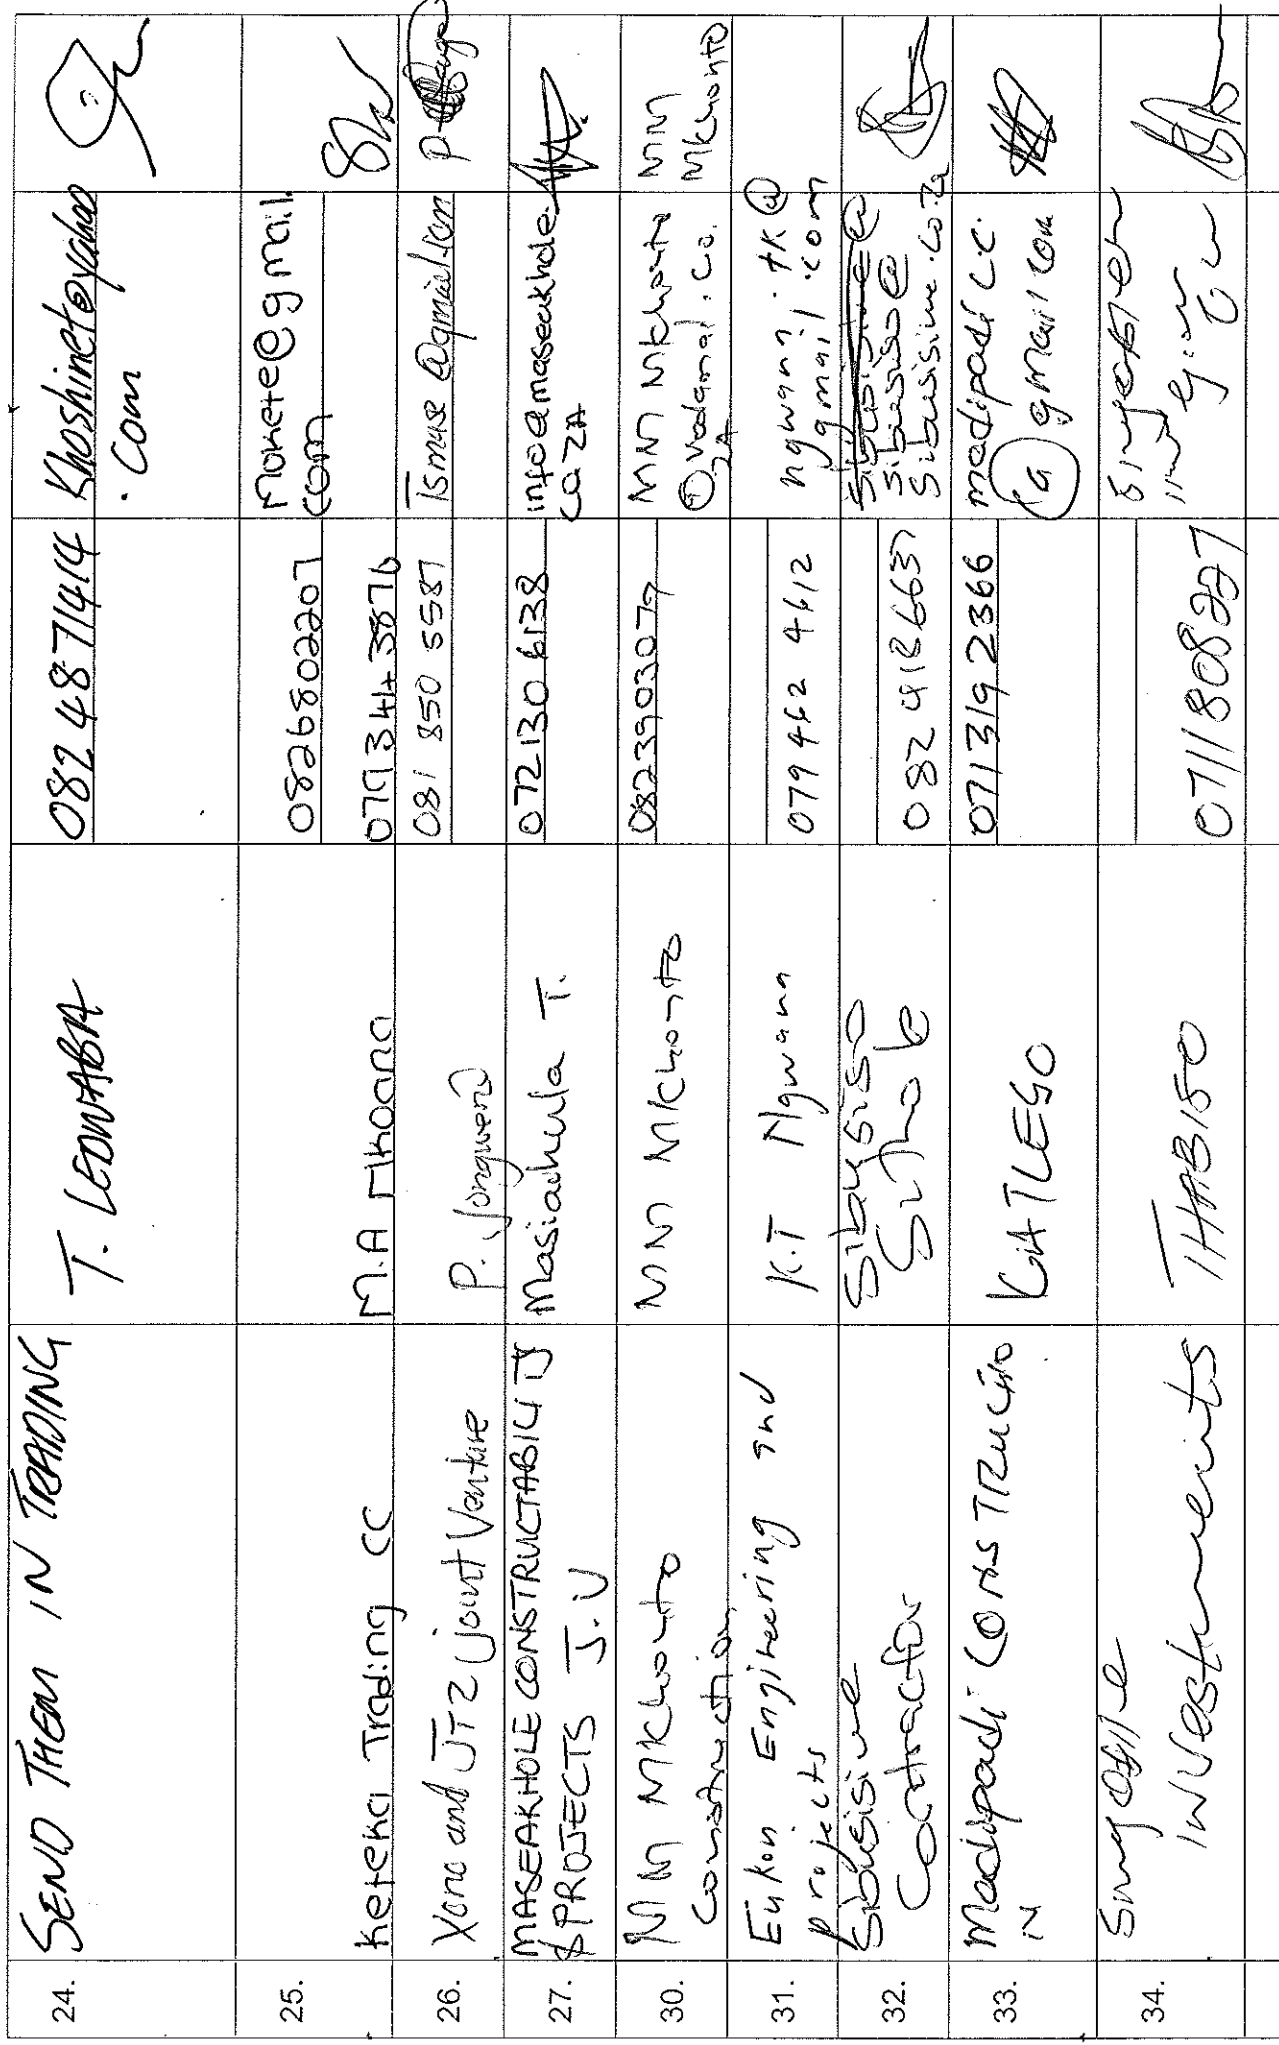 24.
SEND THEM IN TRADING
T. LEDWABA
082 4871414
Khoshinet@yahoo
.com
25.
Keteka Trading CC
M.A Mkoana
0826802207
Mokete@gmail.
com
26.
Xona and JTZ joint Venture
P.
081 850 5587
Tsmuse@gmail.com
27.
MASEAKHOLE CONSTRUCTABILITY
& PROJECTS J.V
Masiachula T.
072130 6138
info@maseakhole.
co.za
30.
MM Mkhonto
Construction
MM Mkhonto
0823903077
MM Mkhonto
@vodamail.co.
ZA
MM
Mkhonto
31.
Eukon Engineering and
Projects
K.T Ngwana
079 462 4612
ngwani.tk@
gmail.com
32.
Sibusisive
Contractor
Sibusiso
Sithole
082 4186637
Sibusiso@
Sibusisive.co.za
33.
Madipadi CONSTRUCTIO
N
KATLEGO
071319 2366
madipadi c.c.
@ gmail com
34.
Investments
THABISO
0711808227